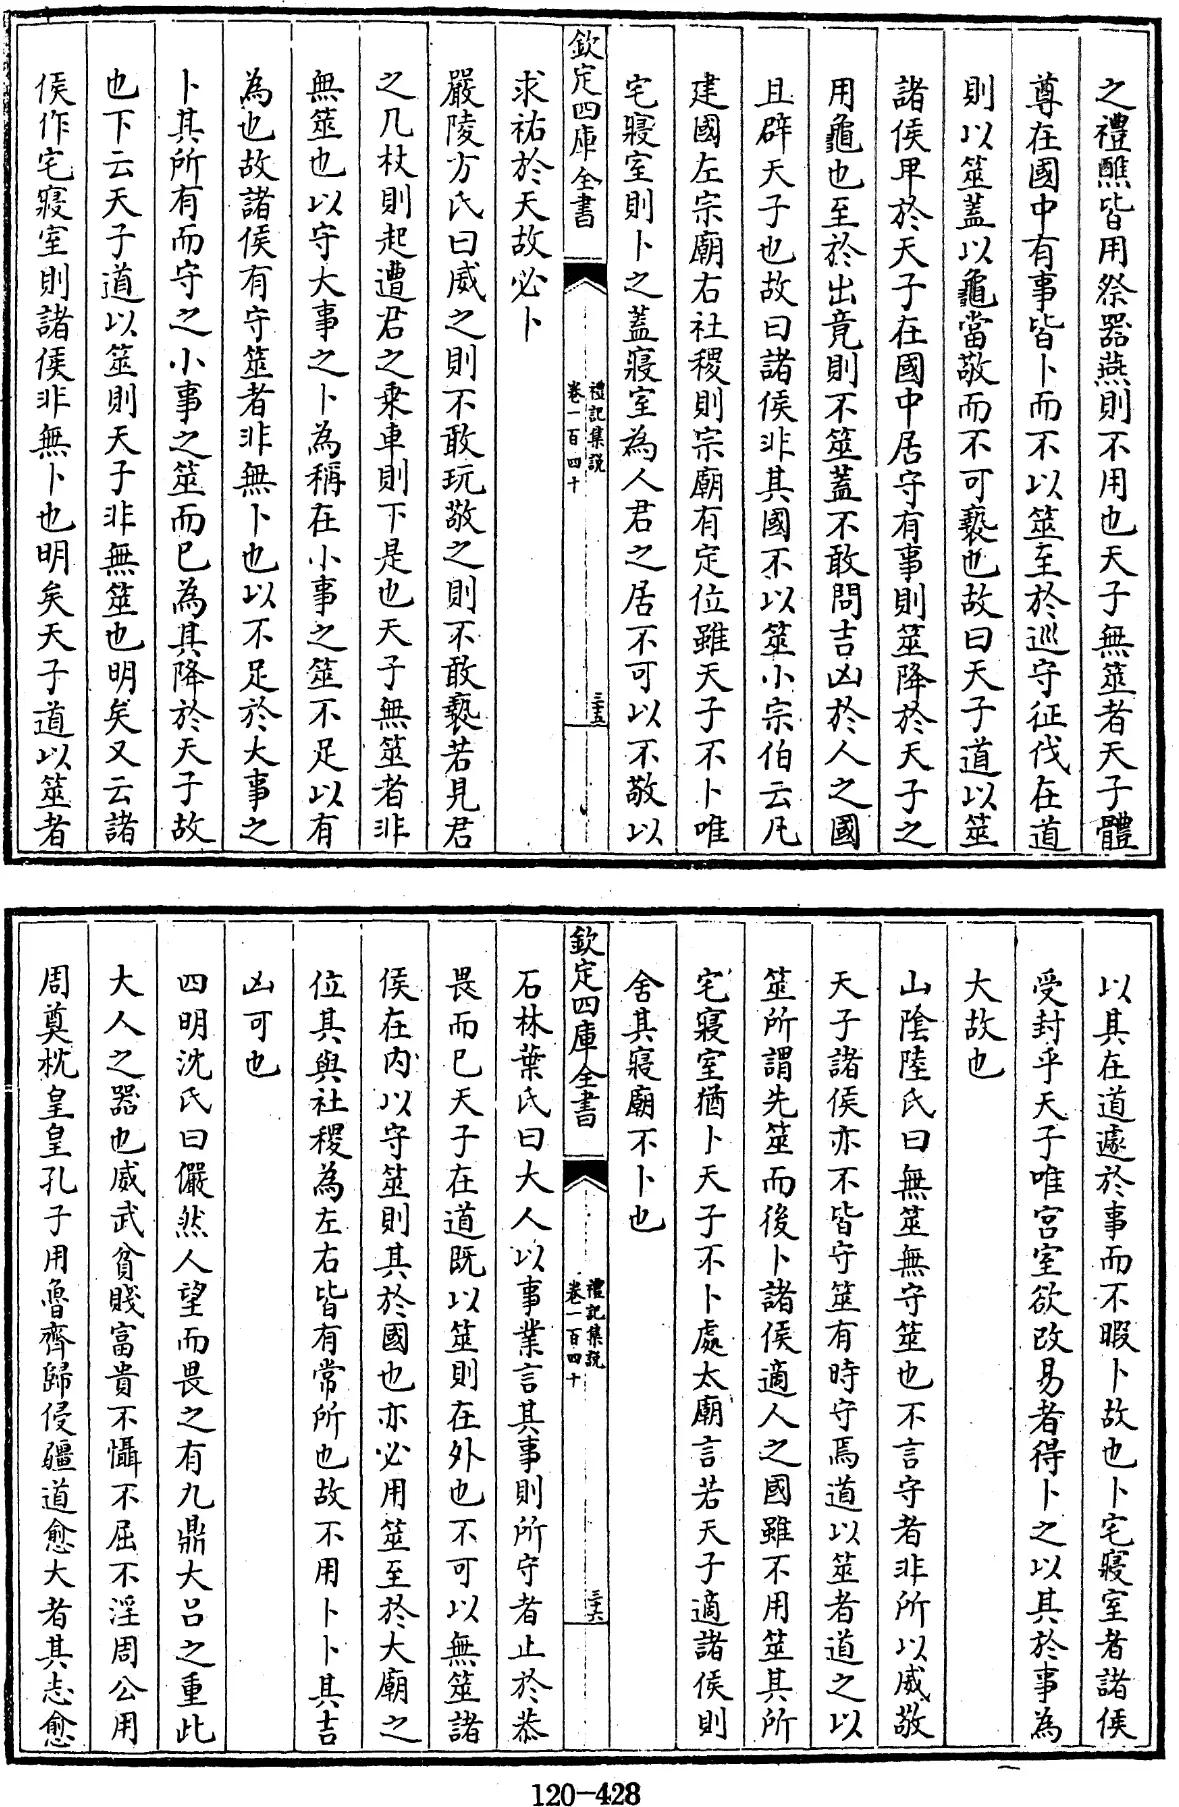 之禮醮皆用祭器燕則不用也天子無筮者天子體
尊在國中有事皆卜而不以筮至於巡守征伐在道
則以筮蓋以龜當敬而不可褻也故曰天子道以筮
諸侯卑於天子在國中居守有事則筮降於天子之
用龜也至於出竟則不筮蓋不敢問吉凶於人之國
且辟天子也故曰諸侯非其國不以筮小宗伯云凡
建國左宗廟右社稷則宗廟有定位雖天子不卜唯
宅寢室則卜之蓋寢室為人君之居不可以不敬以
欽定四庫全書
禮記集說
卷一百四十
三十五
求祐於天故必卜
嚴陵方氏曰威之則不敢玩敬之則不敢褻若見君
之几杖則起遭君之乘車則下是也天子無筮者非
無筮也以守大事之卜為稱在小事之筮不足以有
為也故諸侯有守筮者非無卜也以不足於大事之
卜其所有而守之小事之筮而已為其降於天子故
也下云天子道以筮則天子非無筮也明矣又云諸
侯作宅寢室則諸侯非無卜也明矣天子道以筮者
以其在道遽於事而不暇卜故也卜宅寢室者諸侯
受封乎天子唯宮室欲改易者得卜之以其於事為
大故也
山陰陸氏曰無筮無守筮也不言守者非所以威敬
天子諸侯亦不皆守筮有時守焉道以筮者道之以
筮所謂先筮而後卜諸侯適人之國雖不用筮其所
宅寢室猶卜天子不卜處太廟言若天子適諸侯則
舍其寢廟不卜也
欽定四庫全書
禮記集說
卷一百四十
三十六
石林葉氏曰大人以事業言其事則所守者止於恭
畏而已天子在道既以筮則在外也不可以無筮諸
侯在内以守筮則其於國也亦必用筮至於大廟之
位其與社稷為左右皆有常所也故不用卜卜其吉
凶可也
四明沈氏曰儼然人望而畏之有九鼎大呂之重此
大人之器也威武貧賤富貴不懾不屈不淫周公用
周奠枕皇皇孔子用魯齊歸侵疆道愈大者其志愈
120-428